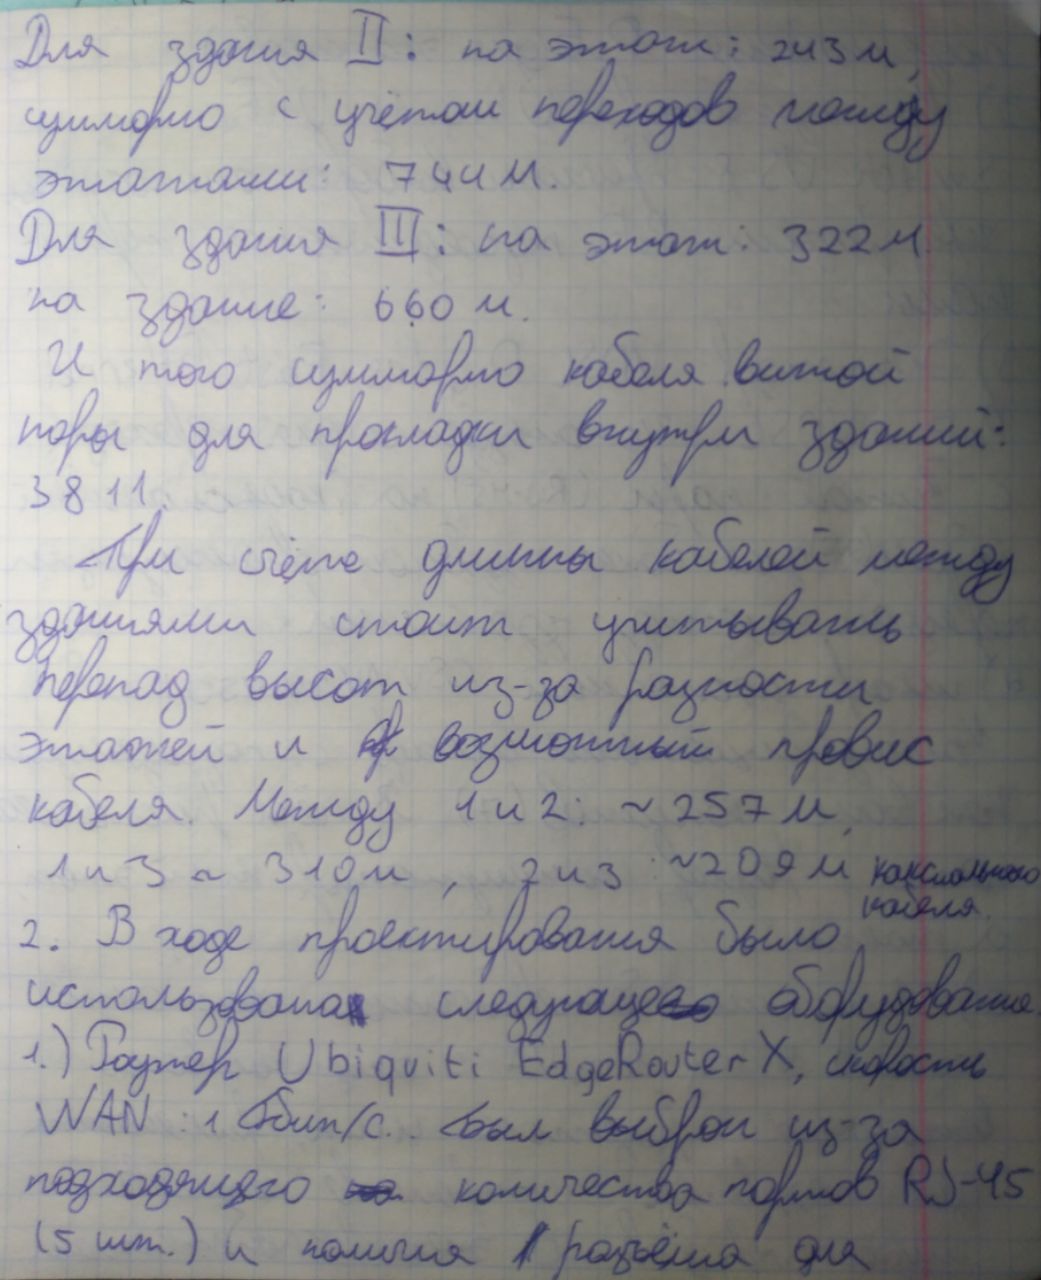 Для здания II: на этаж: 243м,
суммарно с учётом переходов между
этажами: 744м.
Для здания III: на этаж: 322м.
на здание: 660 м.
И того суммарно кабеля витой
пары для прокладки внутри зданий:
3811.
При счёте длинны кабелей между
зданиями стоит учитывать
перепад высот из-за разности
этажей и возможный провис
кабеля. Между 1 и 2: ~257м,
1 и 3 ~ 310м, 2 и 3: ~209м коаксиального
кабеля.
2. В ходе проектирования было
использована следующее оборудование
1.) Роутер Ubiquiti EdgeRouter X, скорость
WAN: 1 Гбит/с. Был выбран из-за
подходящего количества портов RJ-45
(5 шт.) и наличия разъёма для